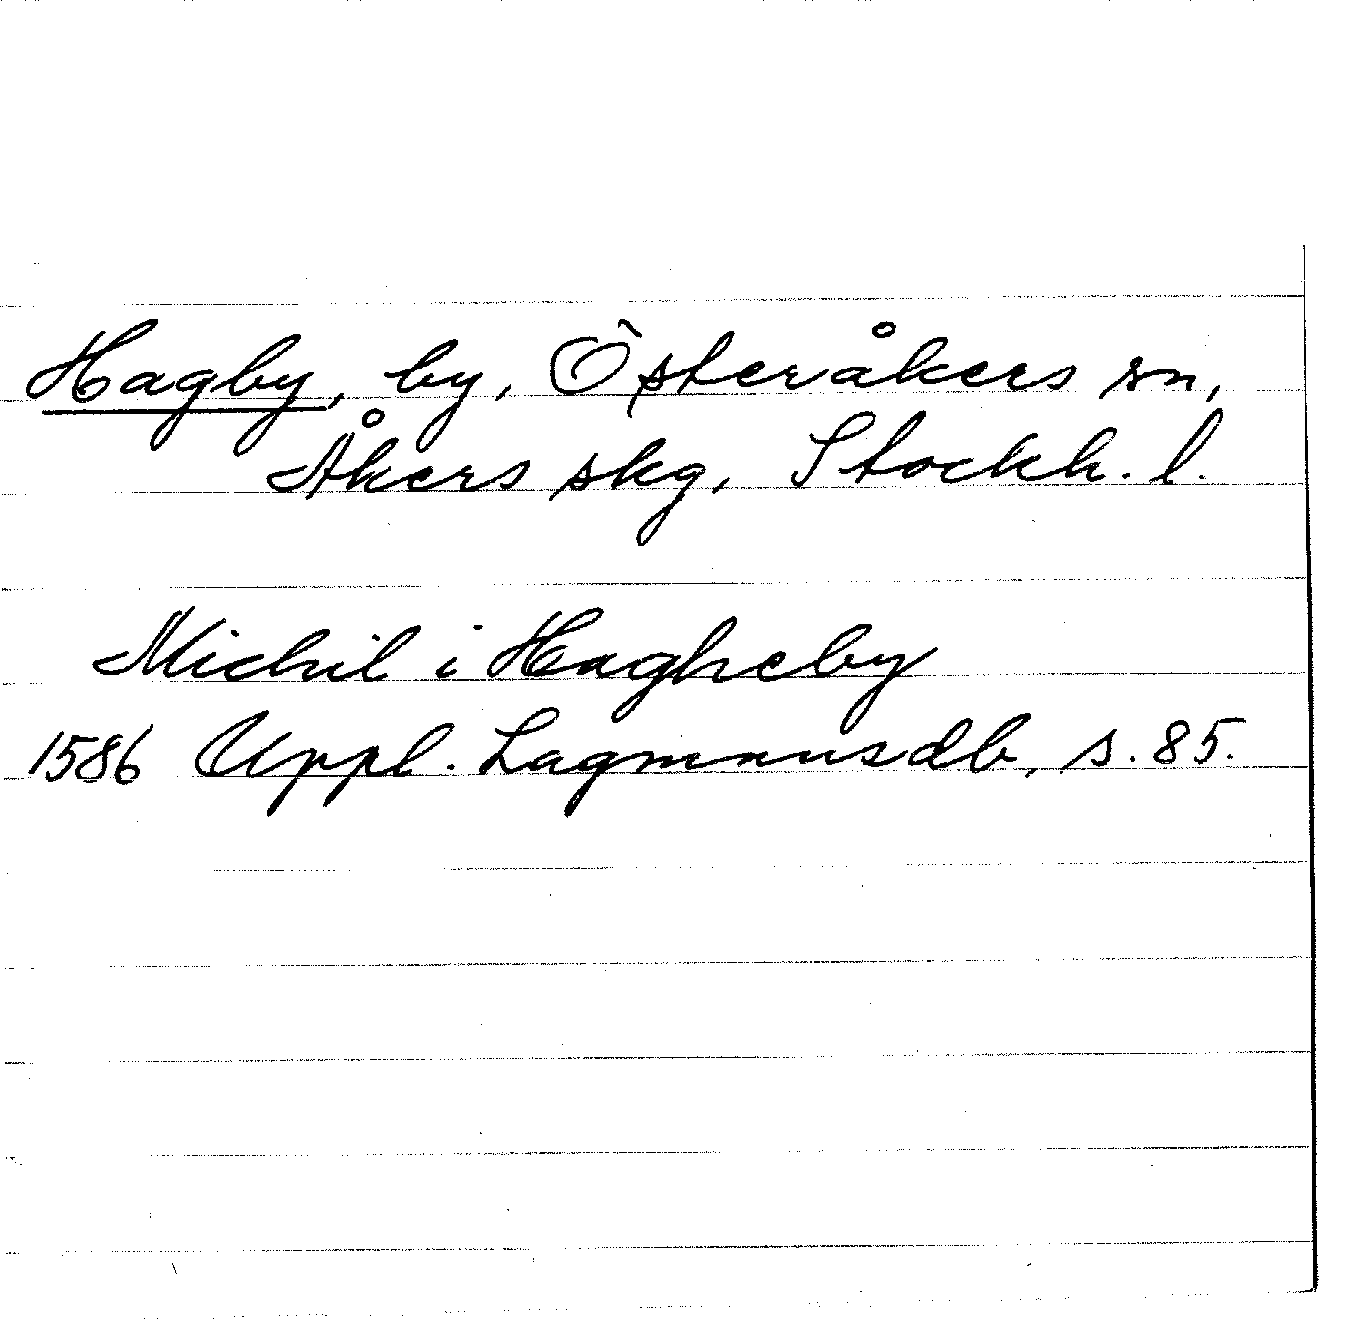 Hagby, by, Österåkers sn,
Åkers skg, Stockh. l.
Michil i Hagheby
1586 Uppl. Lagmansdb, s. 85.